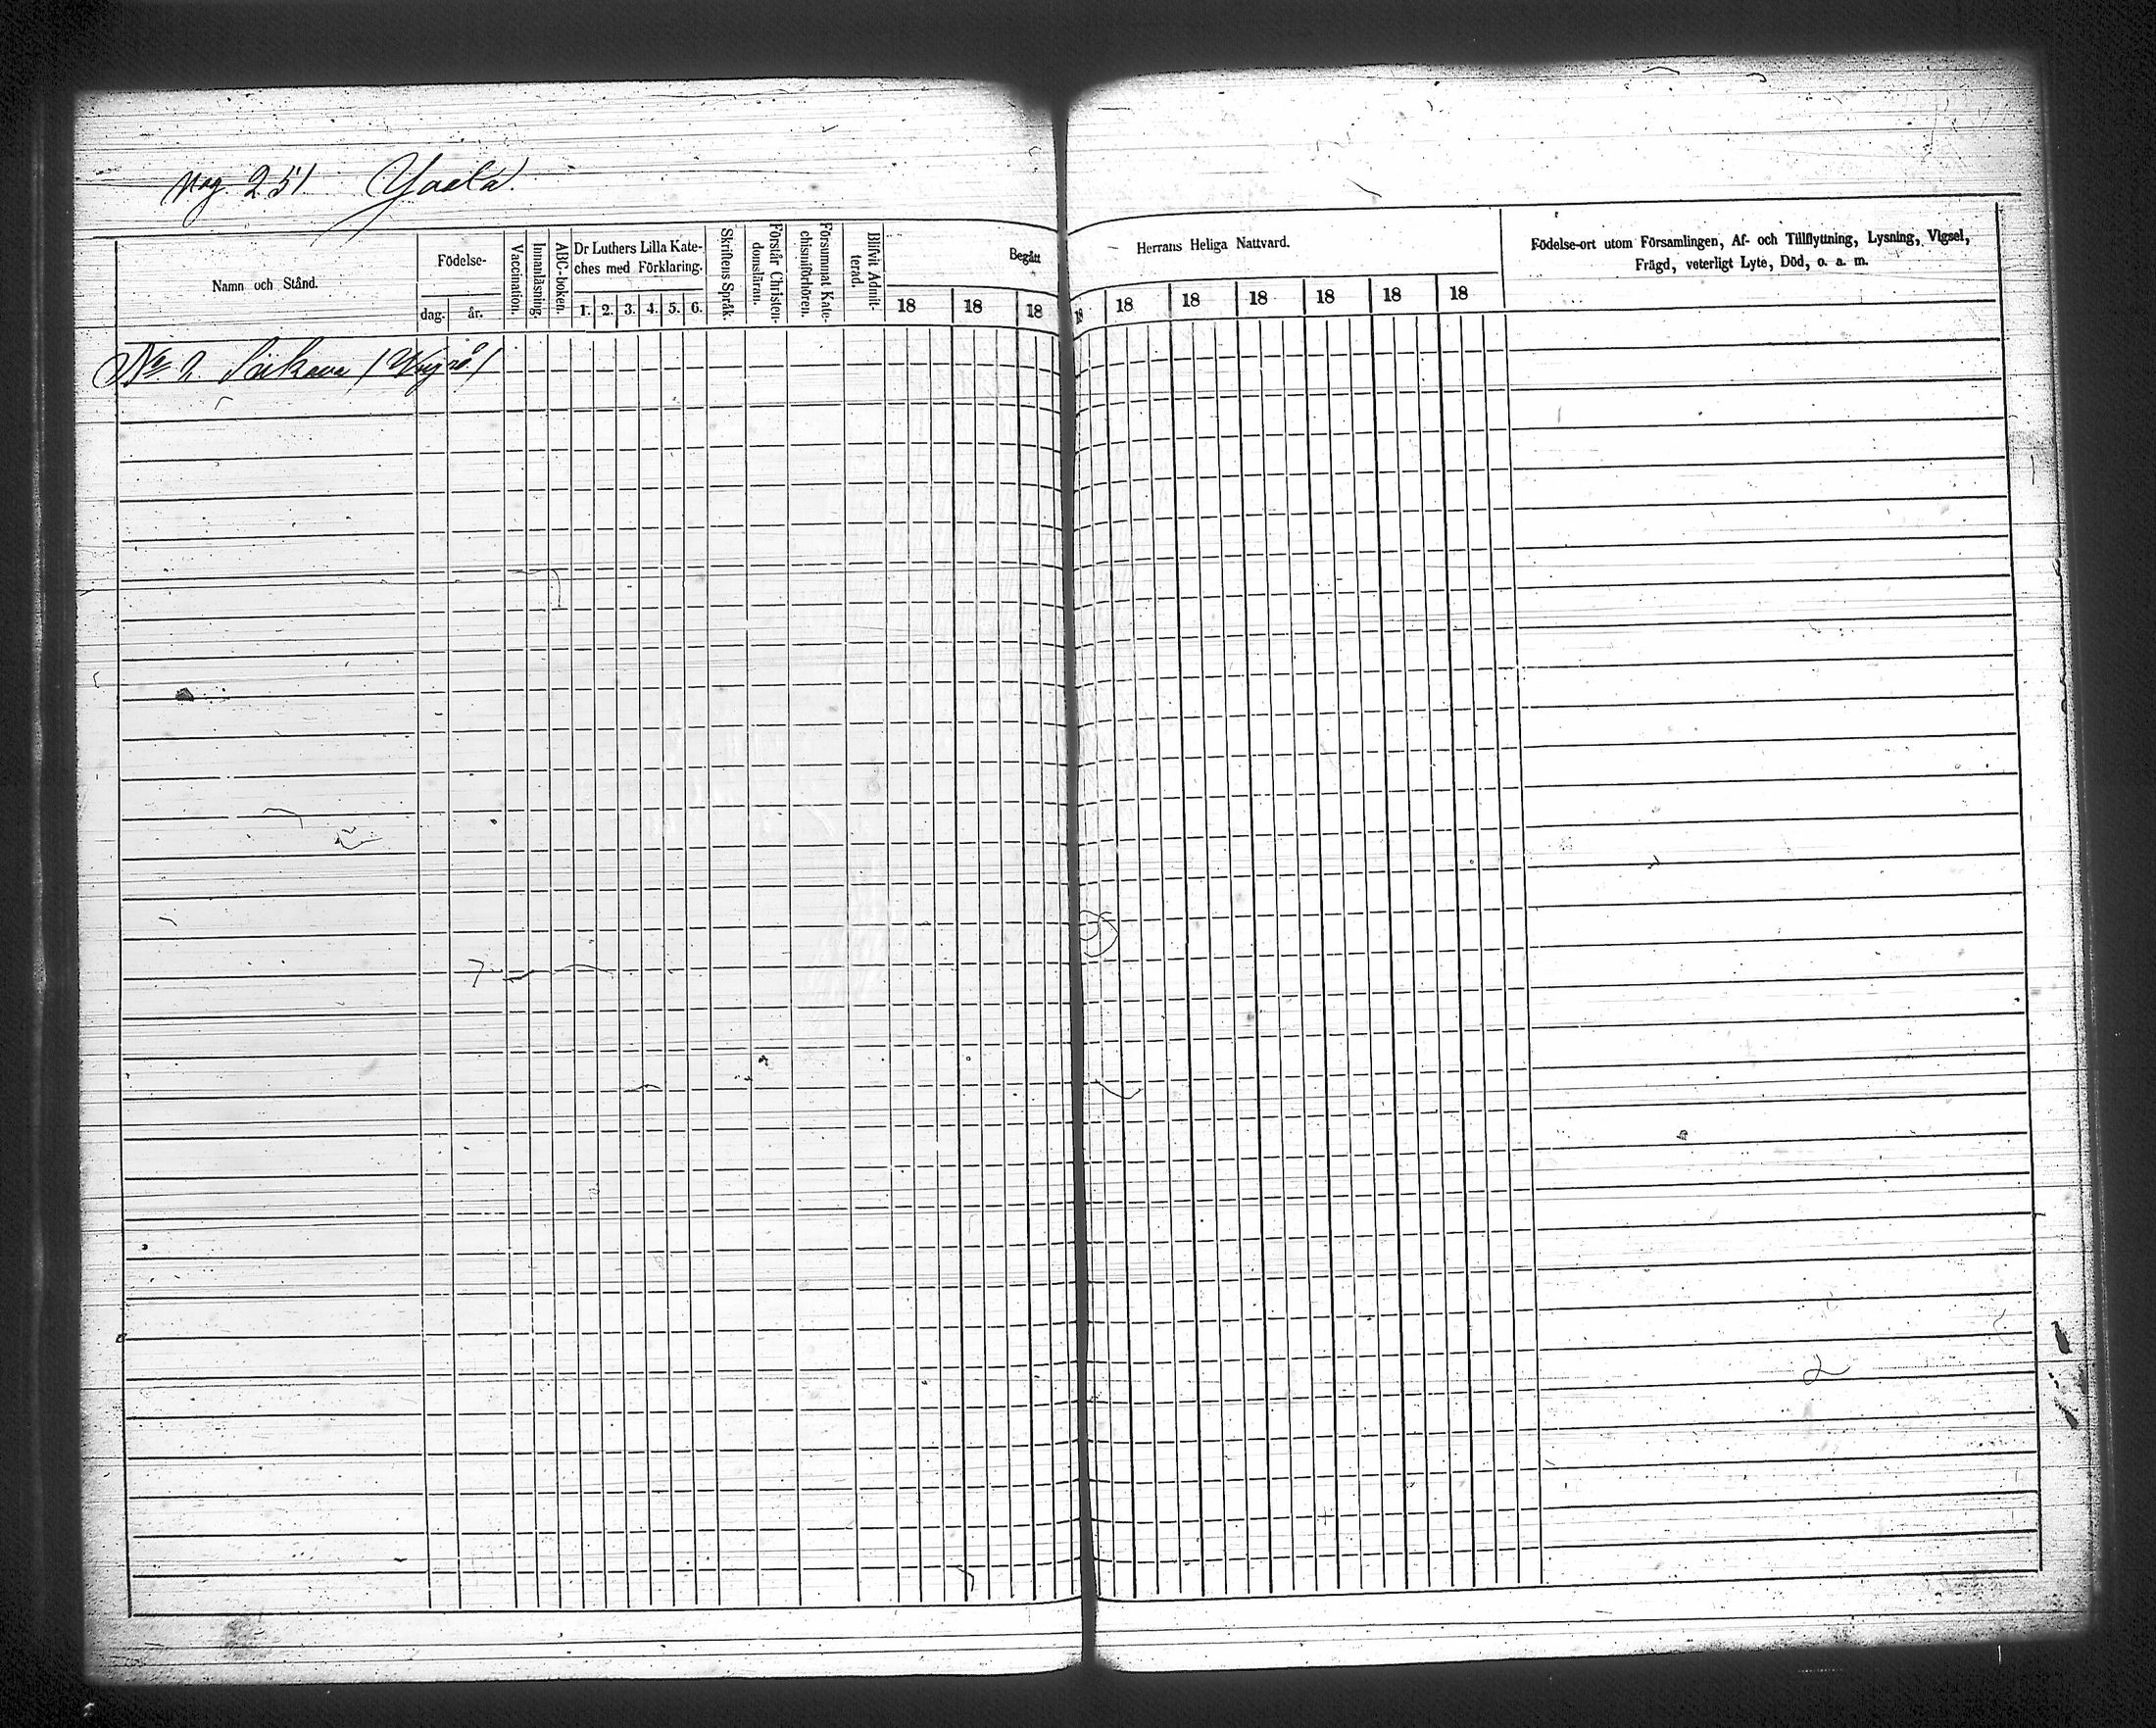 Pag. 251 Yaala.
Namn och Stånd.
Födelse-
dag.
år.
Vaccination.
Innanläsning.
ABC-boken.
Dr Luthers Lilla Kate-
ches med Förklaring.
1. 2. 3. 4. 5. 6.
Skriftens Språk.
Förstår Christen-
domsläran.
Försummat Kate-
chismiförhören.
Blifvit Admit-
terad.
Begått
18 18 18
Herrans Heliga Nattvard.
18 18 18 18 18 18 18
Födelse-ort utom Församlingen, Af- och Tillflyttning, Lysning, Vigsel,
Frägd, veterligt Lyte, Död, o. a. m.
No. 2